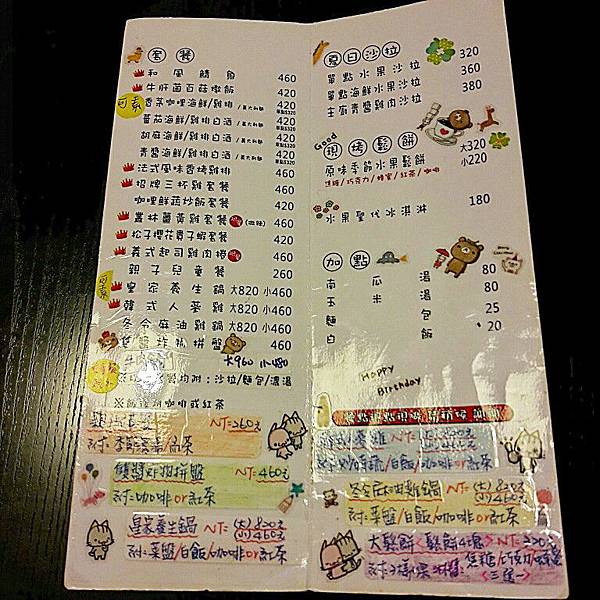 套餐
和風鯖魚 460
牛肝菌百菇燉飯 420
可素
香茅咖哩海鮮/雞排 420
蕃茄海鮮/雞排白酒 420
胡麻海鮮/雞排白酒 420
青醬海鮮/雞排白酒 420
法式風味香烤雞排 460
招牌三杯雞套餐 460
咖哩鮮蔬炒飯套餐 420
叢林薑黃雞套餐 460
松子櫻花賣子蝦套餐 420
義式起司雞肉捲 460
親子兒童餐 260
皇家養生鍋 大820 小460
韓式人蔘雞 大820 小460
冬令麻油雞鍋 大820 小460
雙醬炸物拼盤 460
大960 小480
附:沙拉/麵包/濃湯
咖啡或紅茶
NT=260元
雙醬炸物拼盤 NT=460元
附=咖啡or紅茶
皇家養生鍋 NT=(大)820元
(小)460元
附=菜盤/白飯/咖啡or紅茶
夏日沙拉
單點水果沙拉 320
單點海鮮水果沙拉 360
主廚青醬雞肉沙拉 380
Good
現烤鬆餅
原味季節水果鬆餅 大320
小220
焦糖/巧克力/蜂蜜/紅茶/咖啡
水果聖代冰淇淋 180
加點
南瓜湯 80
玉米湯 80
麵包 25
白飯 20
Happy
Birthday
白飯/咖啡or紅茶
冬令麻油雞鍋 NT=(大)820元
(小)460元
附=菜盤/白飯/咖啡or紅茶
大鬆餅<鬆餅4塊>NT=320元
<三選一>